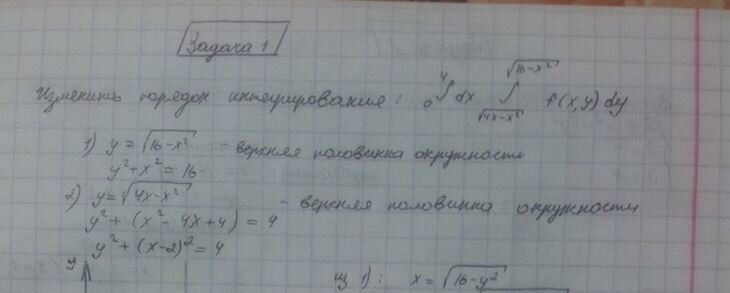 Задача 1
Изменить порядок интегрирования: ₀∫⁴ dx ∫_{√4x-x²}^{√16-x²} f(x,y) dy
1) y = √16-x² - верхняя половинка окружности
y² + x² = 16
2) y = √4x-x² - верхняя половинка окружности
y² + (x² - 4x + 4) = 4
y² + (x-2)² = 4
y
из 1): x = √16-y²